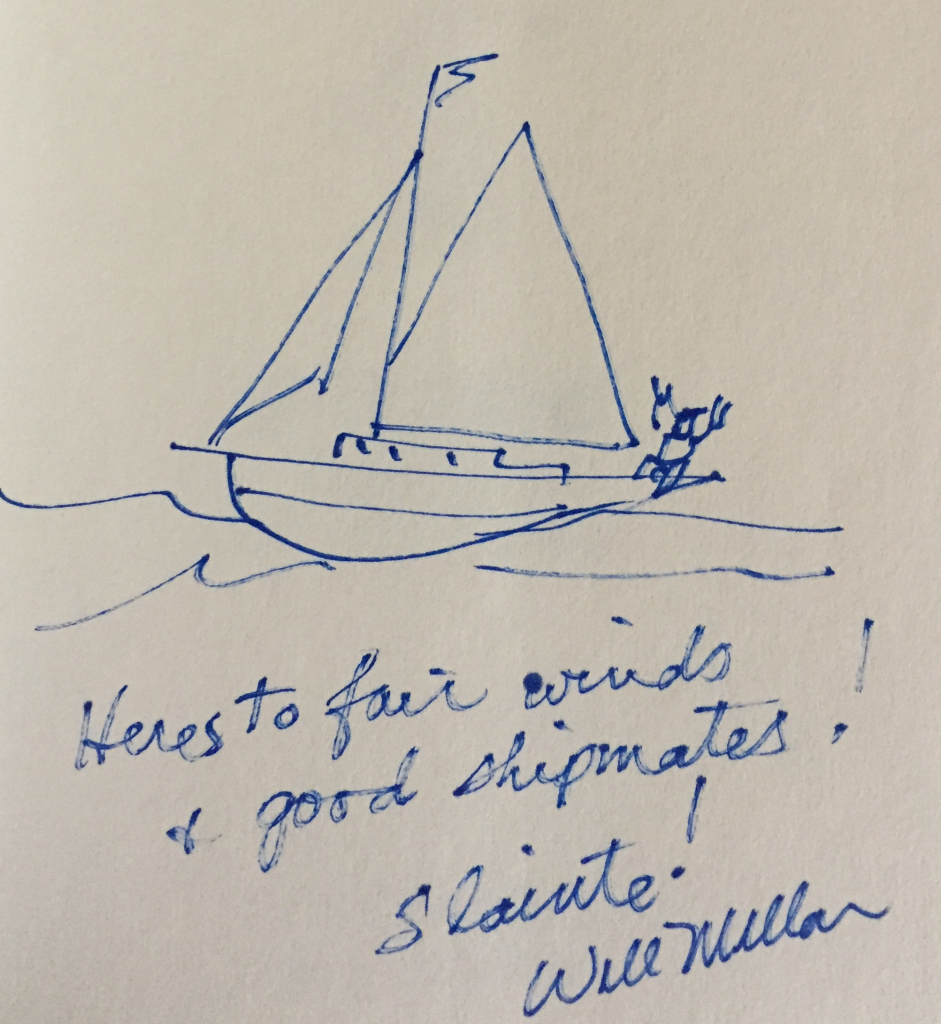 Heres to fair winds
& good shipmates!
Slainte!
Will Millar